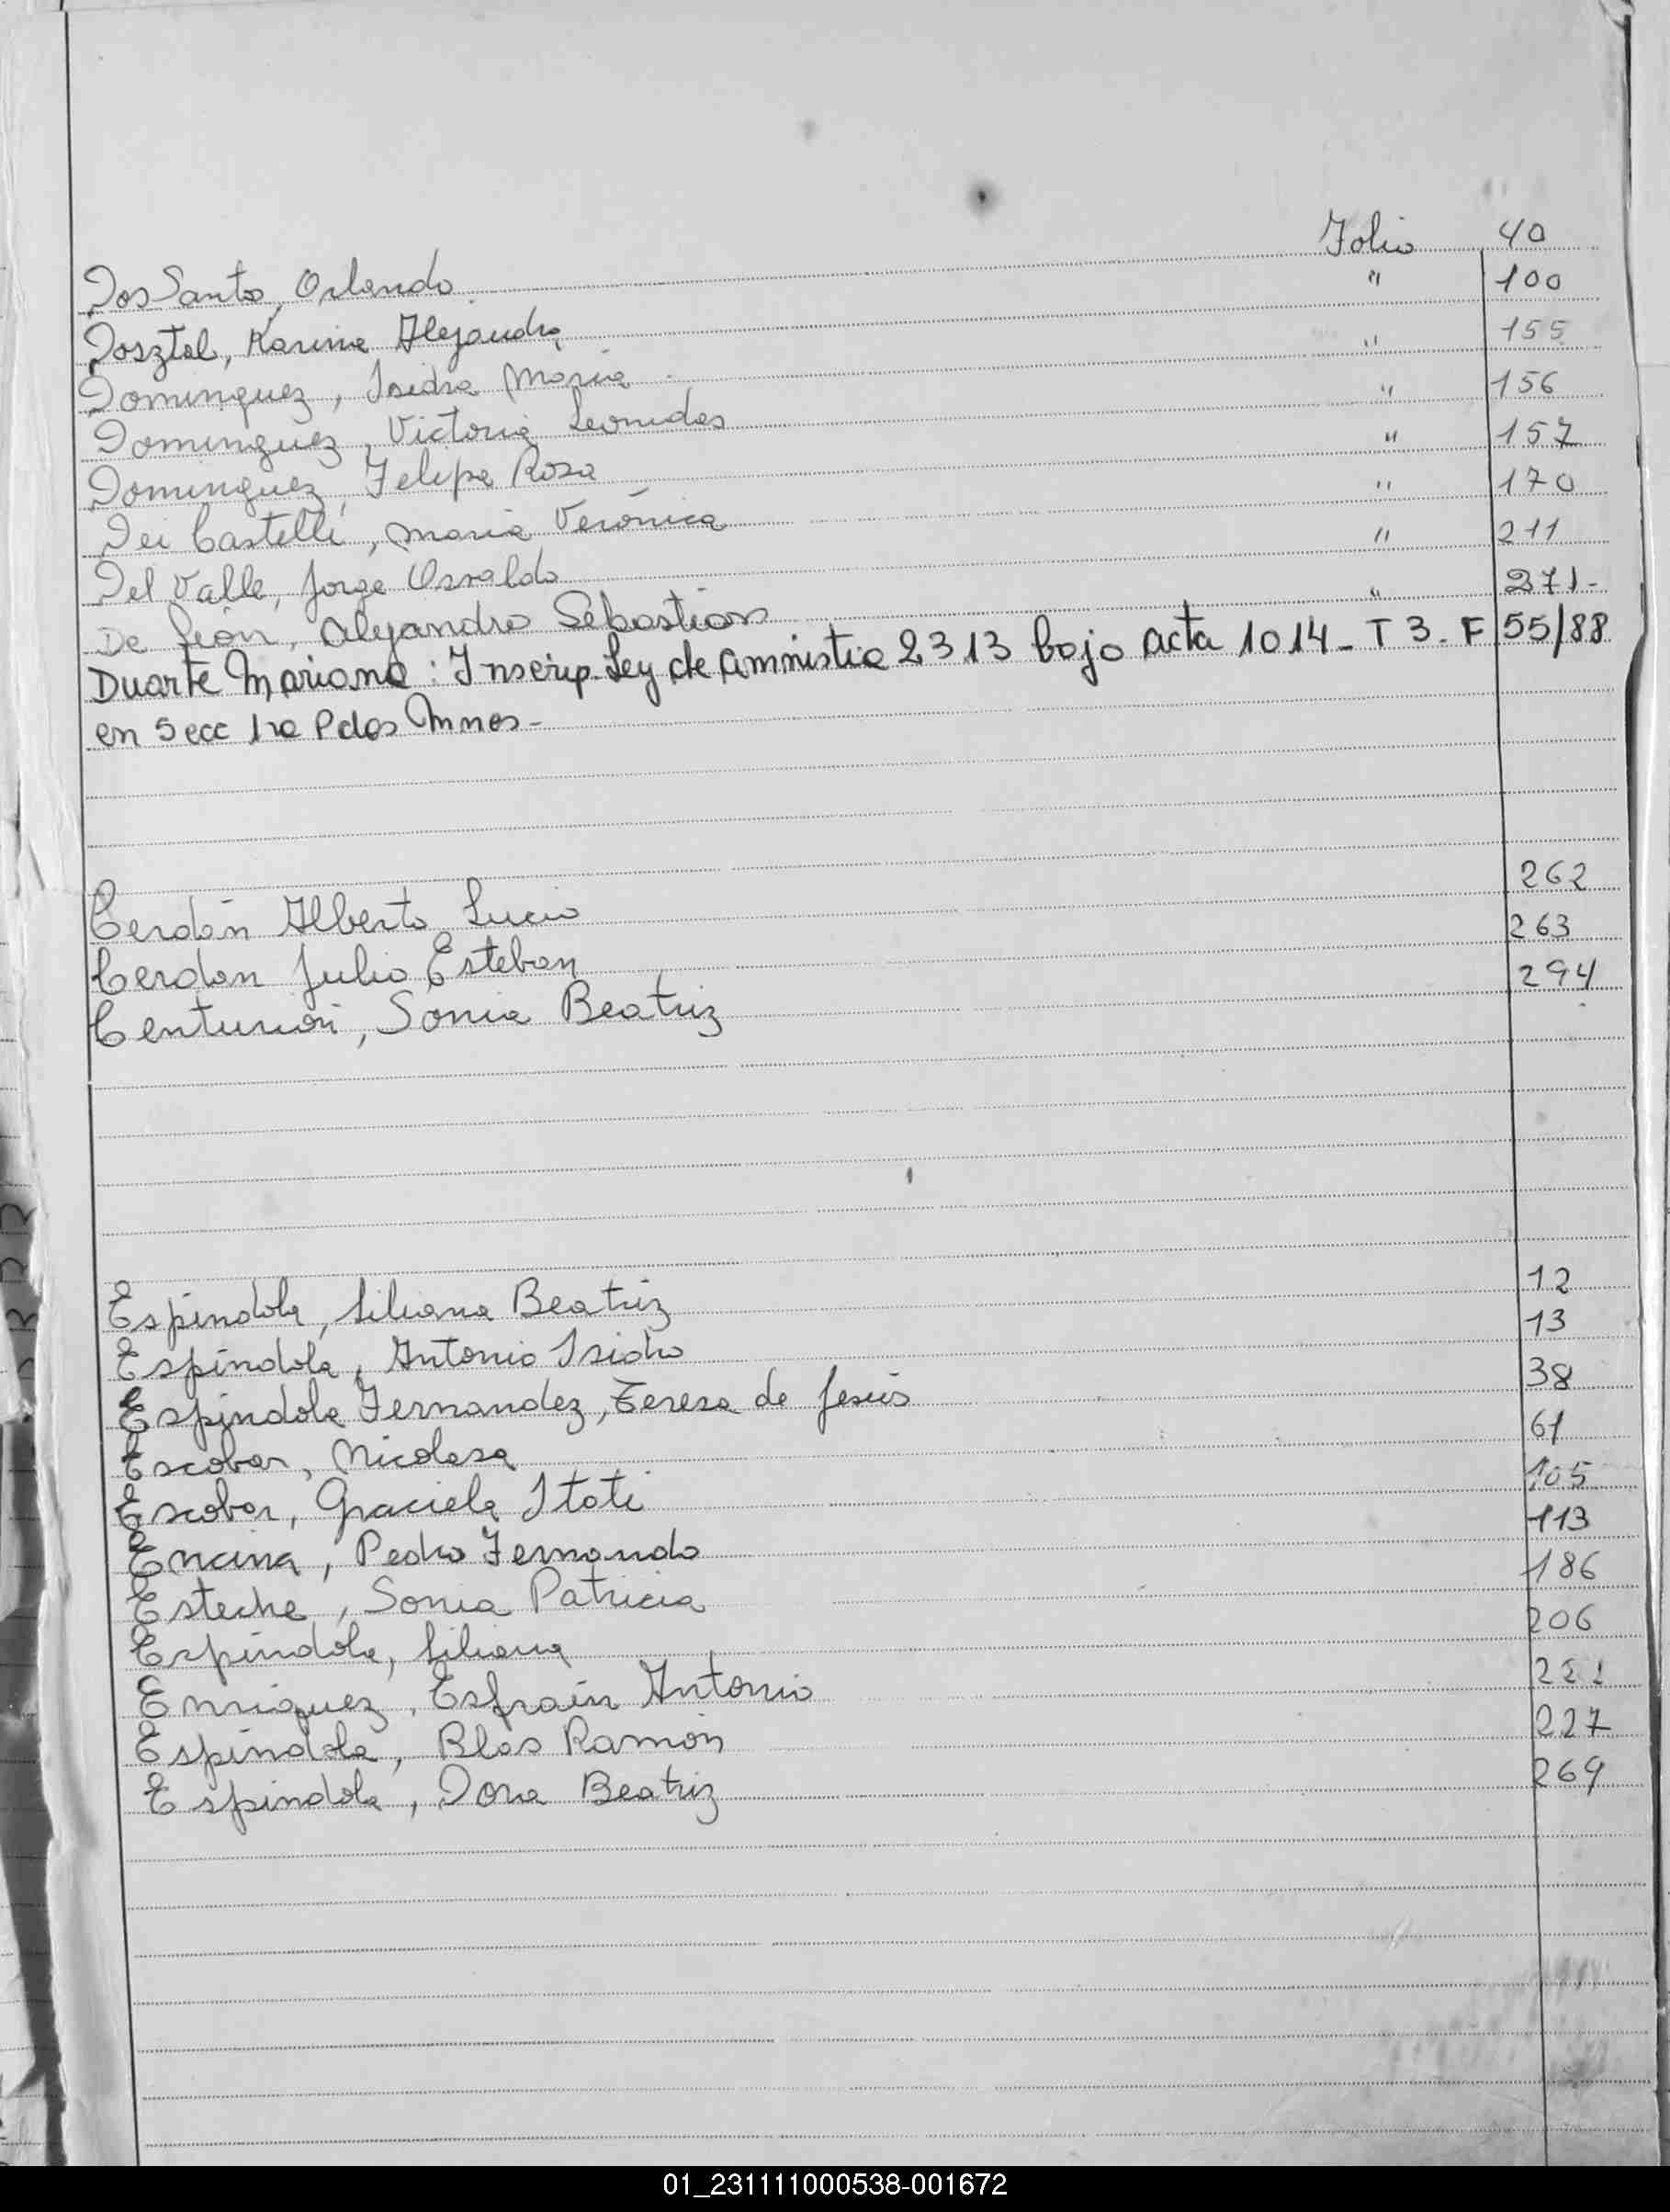 Dos Santo, Orlando Folio 40
Dosztal, Karina Alejandra " 100
Dominguez, Isidra Maria " 155
Dominguez, Victoria Leonidas " 156
Dominguez, Felipa Rosa " 157
Dei Castelli, Maria Verónica " 170
Del Valle, Jorge Osvaldo " 211
De León, Alejandro Sebastian " 271-
Duarte Mariana: Inscrip. Ley de amnistia 2313 bajo acta 1014- T 3- F 55/88
en Secc 1ra Pdas Mnes-
Cerdán Alberto Lucio 262
Cerdan Julio Esteban 263
Centurión, Sonia Beatriz 294
Espindola, Liliana Beatriz 12
Espíndola, Antonio Isidro 13
Espindola Fernandez, Teresa de Jesús 38
Escobar, Nicolasa 61
Escobar, Graciela Itati 105
Encina, Pedro Fernando 113
Esteche, Sonia Patricia 186
Espíndola, Liliana 206
Enriquez, Esfraín Antonio 221
Espíndola, Blas Ramón 227
Espíndola, Dora Beatriz 269
01_231111000538-001672